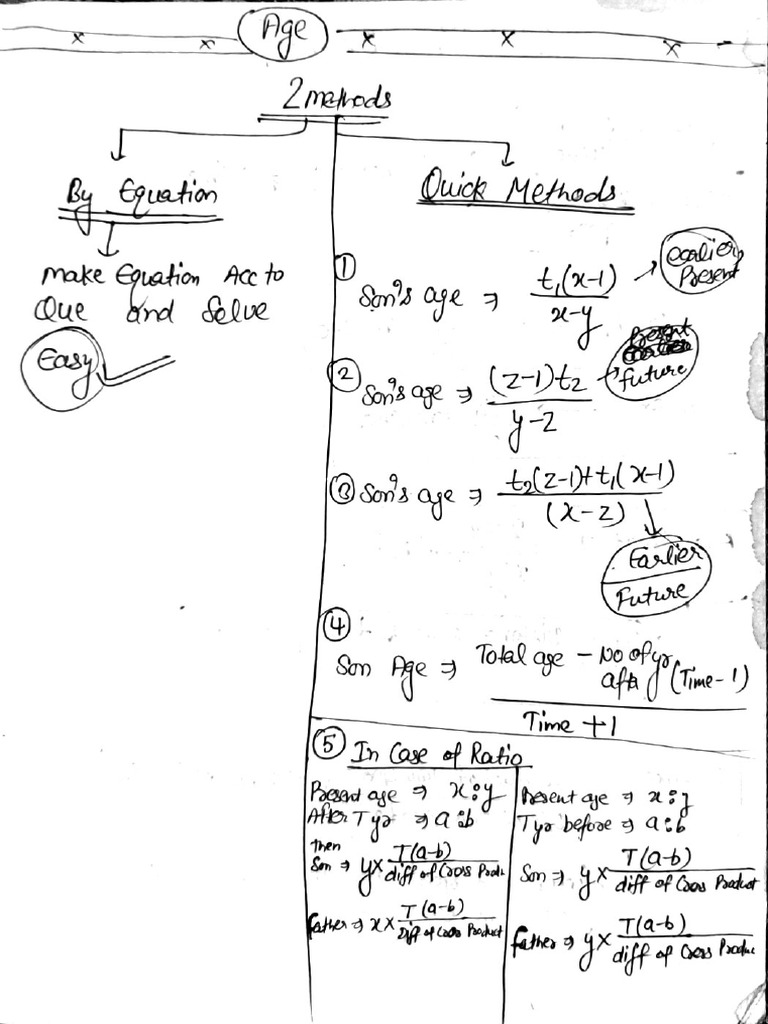 Age
2 methods
By Equation
Make Equation Acc to
Que and Solve
Easy
Quick Methods
① Son's age ⇒ t₁(x-1) / x-y → earlier, Present
② Son's age ⇒ (z-1)t₂ / y-z → Present future
③ Son's age ⇒ t₂(z-1)+t₁(x-1) / (x-z)
Earlier
Future
④
Son Age ⇒ Total age - No of yr aftr (Time-1) / Time +1
⑤ In Case of Ratio
Present age ⇒ x:y
After T yr ⇒ a:b
then
Son ⇒ y× T(a-b) / diff of Cross Produc
father ⇒ x× T(a-b) / Diff of Cross Product
Present age ⇒ x:y
T yr before ⇒ a:b
Son ⇒ y× T(a-b) / diff of Cross Product
father ⇒ y× T(a-b) / diff of Cross Produc